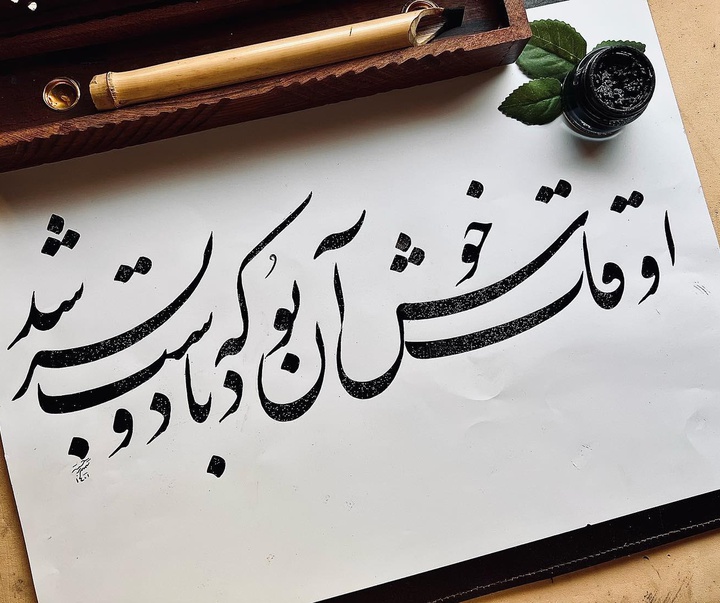 اوقات خوش آن بود که با دوست بسر شد